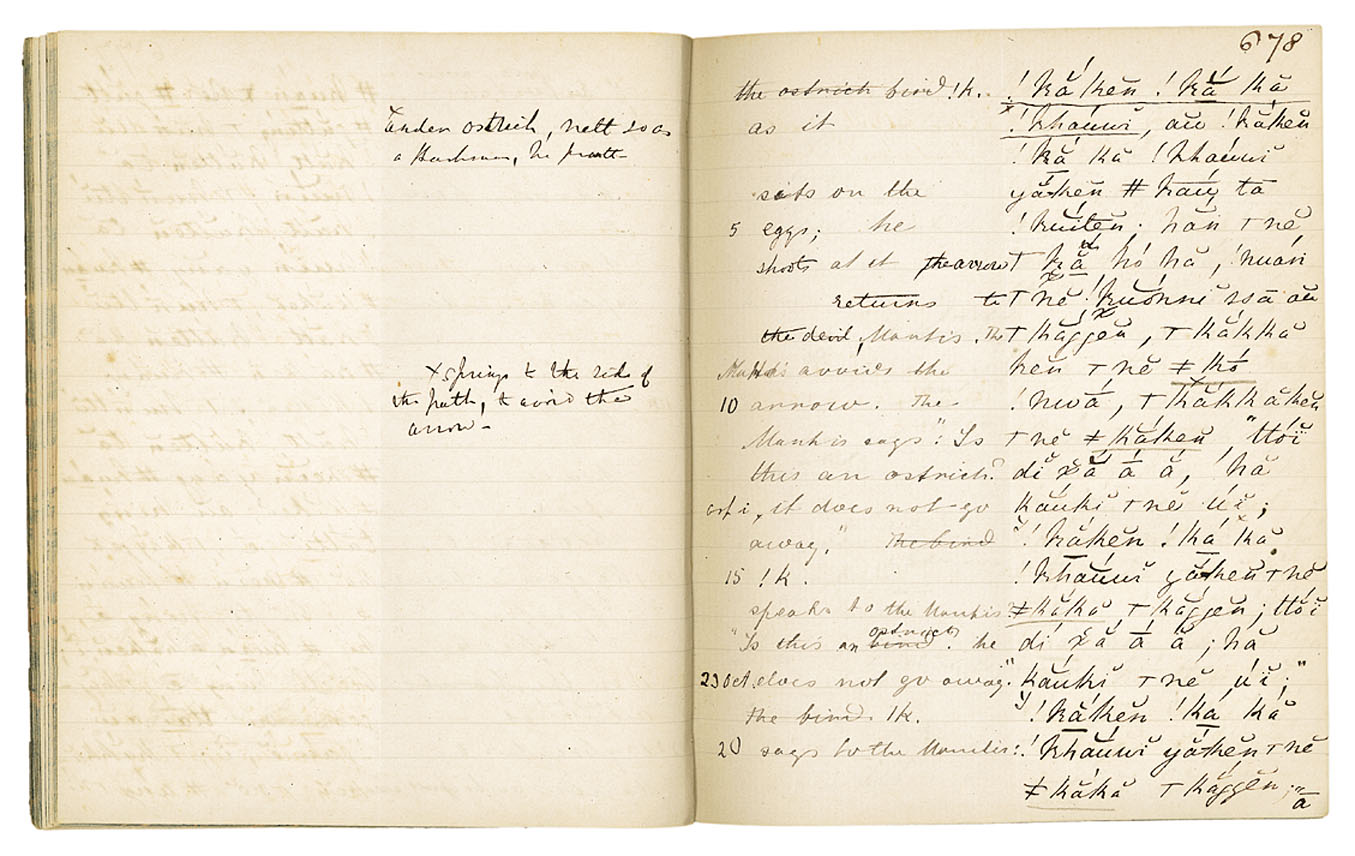 ostrich, nett so as
a Bushman, he
x springs to the side of
the path, to avoid the
arrow -
678
the ostrich bird !k. !kắken !kắ kă
as it !kháuwĭ, au !kắken
!kắ kă !kháuwĭ
sits on the yắken ǂ kauŋ ta
5 eggs; he !kuiten. hăn ⊤ nĕ
shoots at it the arrow ⊤ kắ hó hă, !nuáń
returns to ⊤ nĕ !kuónnĭ ssa au
the devil, Mantis. The ⊤ kắggĕn, ⊤ kắkkă
Mantis avoids the ken ⊤ nĕ ǂ kó
10 arrow. The !nwá, ⊤ kắkkăken
Mantis says: "Is ⊤ nĕ ǂ kắken, "ttóĭ
this an ostrich? dĭ x̆ắ ā á, hă
it does not go kauki ⊤ nĕ úĭ;
away." the bird !kắken !ká kă
15 !k. !kháuwĭ yắken ⊤ nĕ
speaks to the Mantis ǂ kắkă ⊤ kắggĕn; ttóĭ
"Is this an bird ostrich. he dĭ x̆ắ ā á; hă
23 Oct. does not go away." káuki ⊤ nĕ úĭ;"
the bird. !k. !kắken !ká kă
20 says to the Mantis: !kháuwĭ yắken ⊤ nĕ
ǂ kắkă ⊤ kắggĕn; "ā